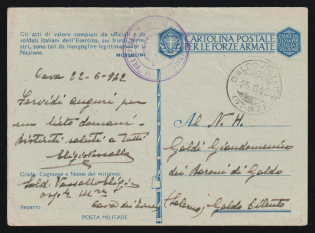 Gli atti di valore compiuti da ufficiali e da
soldati italiani dell'Esercito, sui fronti terre-
stri, sono tali da inorgoglire legittimamente la
Nazione.
MUSSOLINI
CARTOLINA POSTALE
PER LE FORZE ARMATE
Cava 22-6-942
Fervidi auguri per
un lieto domani.
Distinti saluti a tutti
Eligio Vassallo
Grado, Cognome e Nome del mittente
Sold. Vassallo Eligio
Reparto
Cava dei
POSTA MILITARE
Al N. H.
Galdi Giandomenico
dei Baroni di Galdo
Salerno, Galdo Cilento